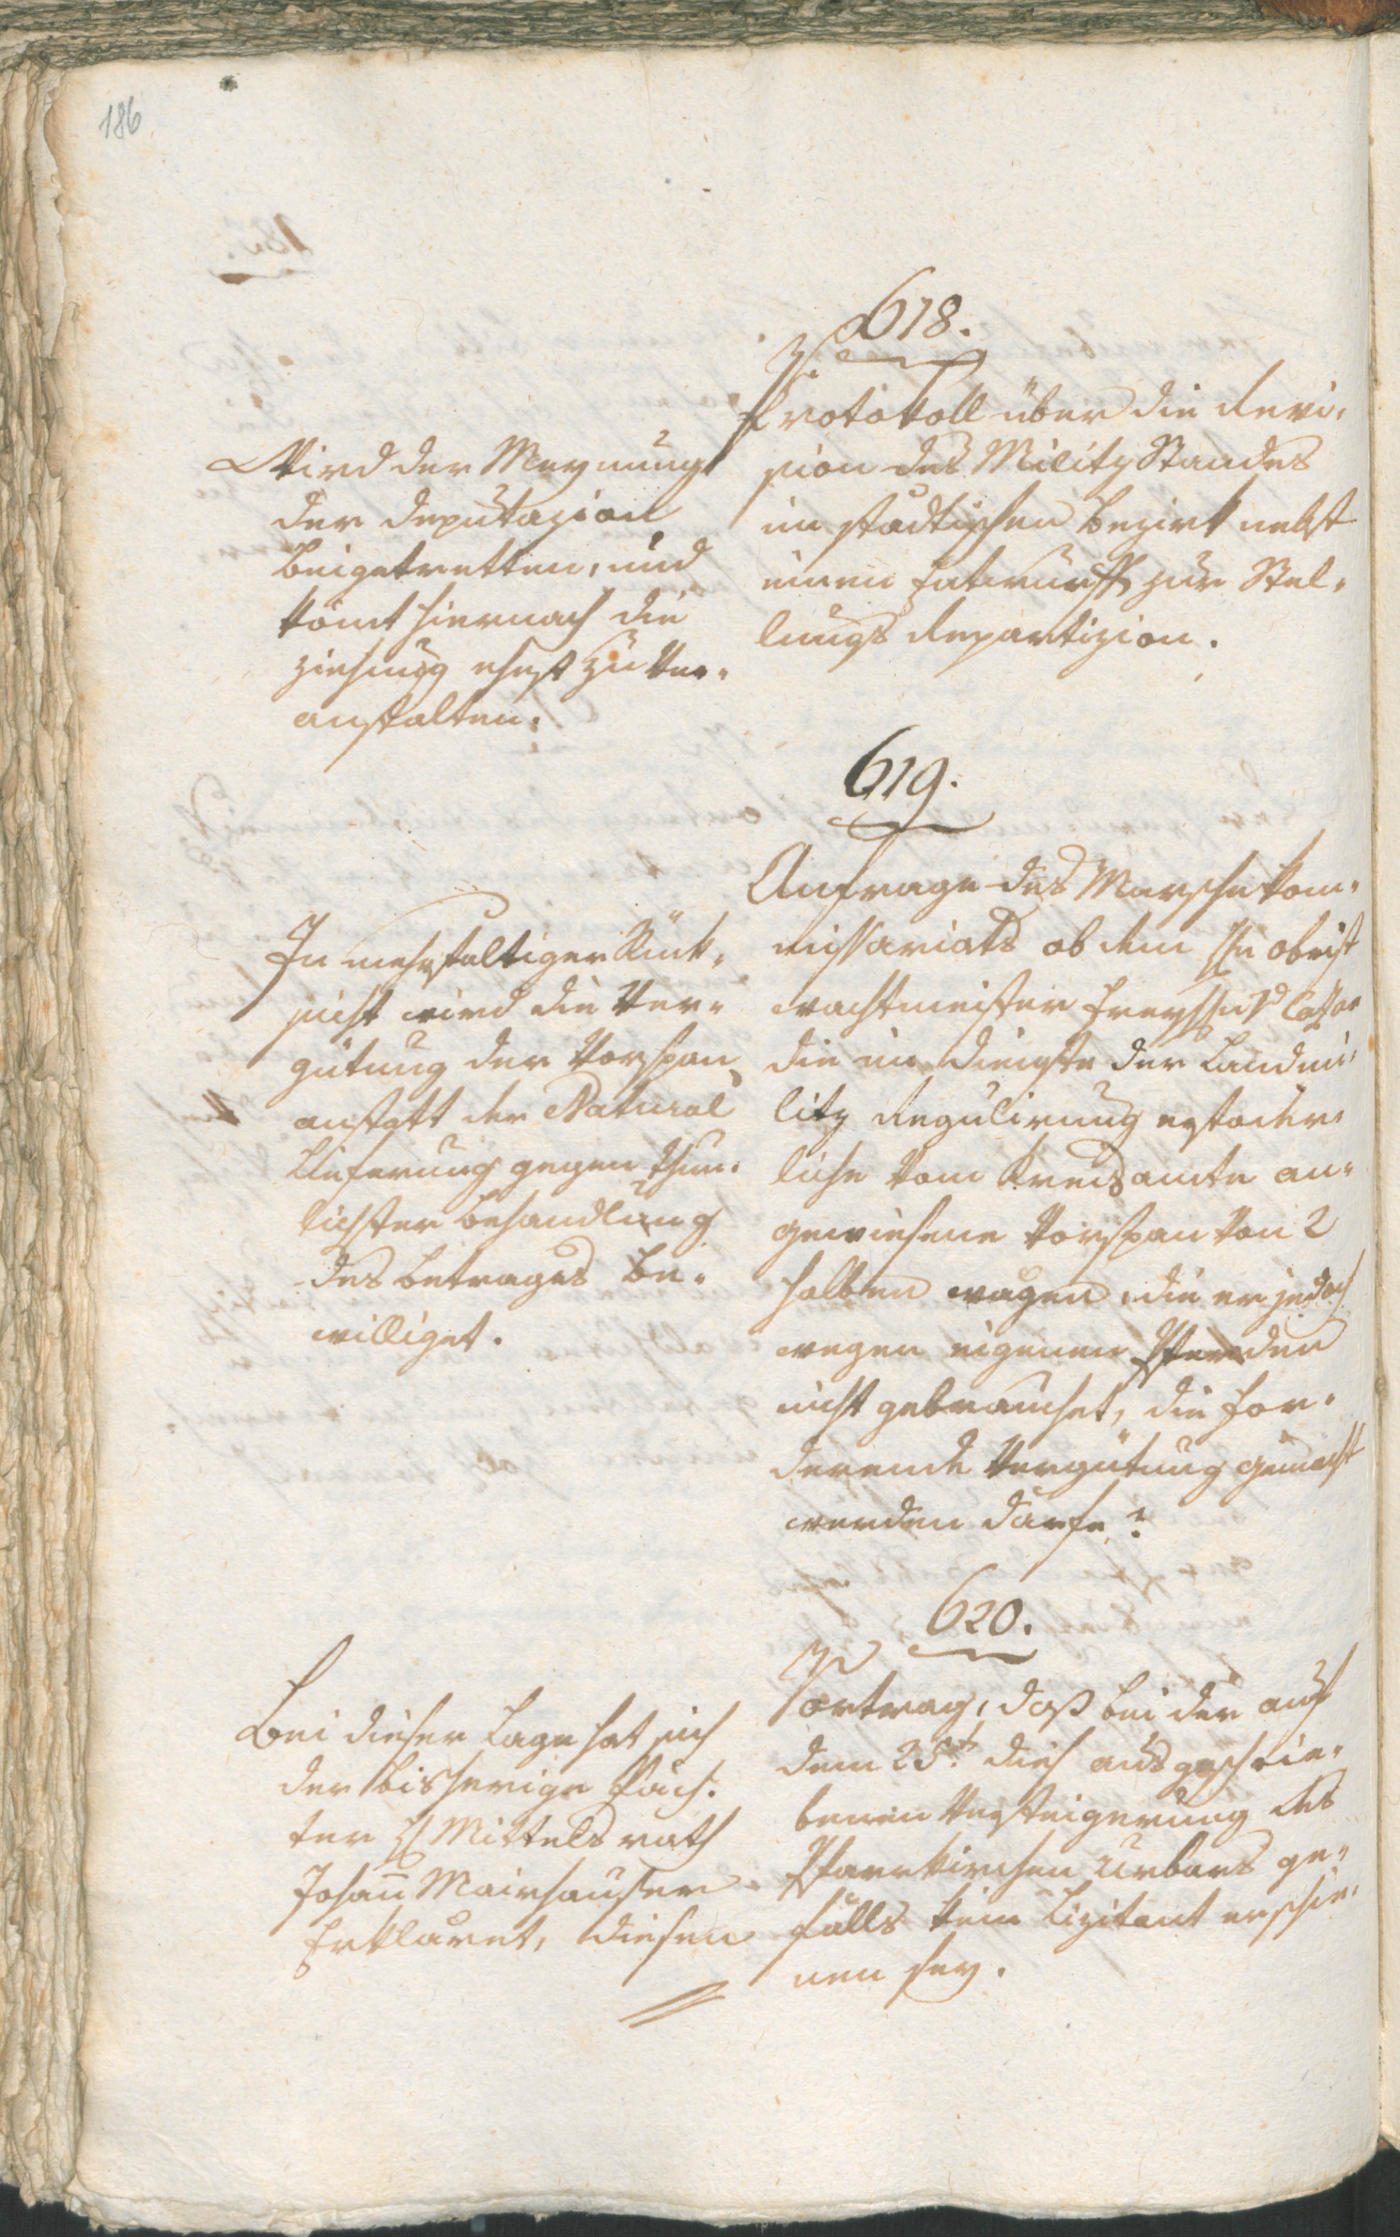 186
618.
Protokoll über die Revi-
sion des Militz Standes
im städtischen Bezirk nebst
einem Entwurff zur Stel-
lungs Repartizion.
Wird der Meynung
der Deputazion
beigetretten, und
kömt hiernach die
Ziehung ehest zu ver-
anstalten.
619.
Anfrage des Marsche Kom-
missariats ob dem Hn Obrist
wachtmeister Freyh
die im Dienste der Landmi-
litz Regulirung erfoder-
liche vom Kreisamte an-
gewiesene Vorspan von 2
halben Wagen, die er jedoch
wegen eigenen Pferden
nicht gebrauchet, die for-
derende Vergütung gemacht
werden därfe?
In mehrfältiger Rück-
sicht wird die Ver-
gütung der Vorspan
anstatt der Natural
Lieferung gegen thun-
lichster Behandlung
des Betrages be-
williget.
620.
Vortrag, daß bei der auf
dem 25t. dieß ausgeschrie-
benen Versteigerung des
Pfarrkirchen Urbars ge-
fälls kein Lizitant erschie-
nen sey.
Bei dieser Lage hat sich
der bisherige Päch-
ter H Mittelsrath
Johann Mairhauser
Erklaret, diesen